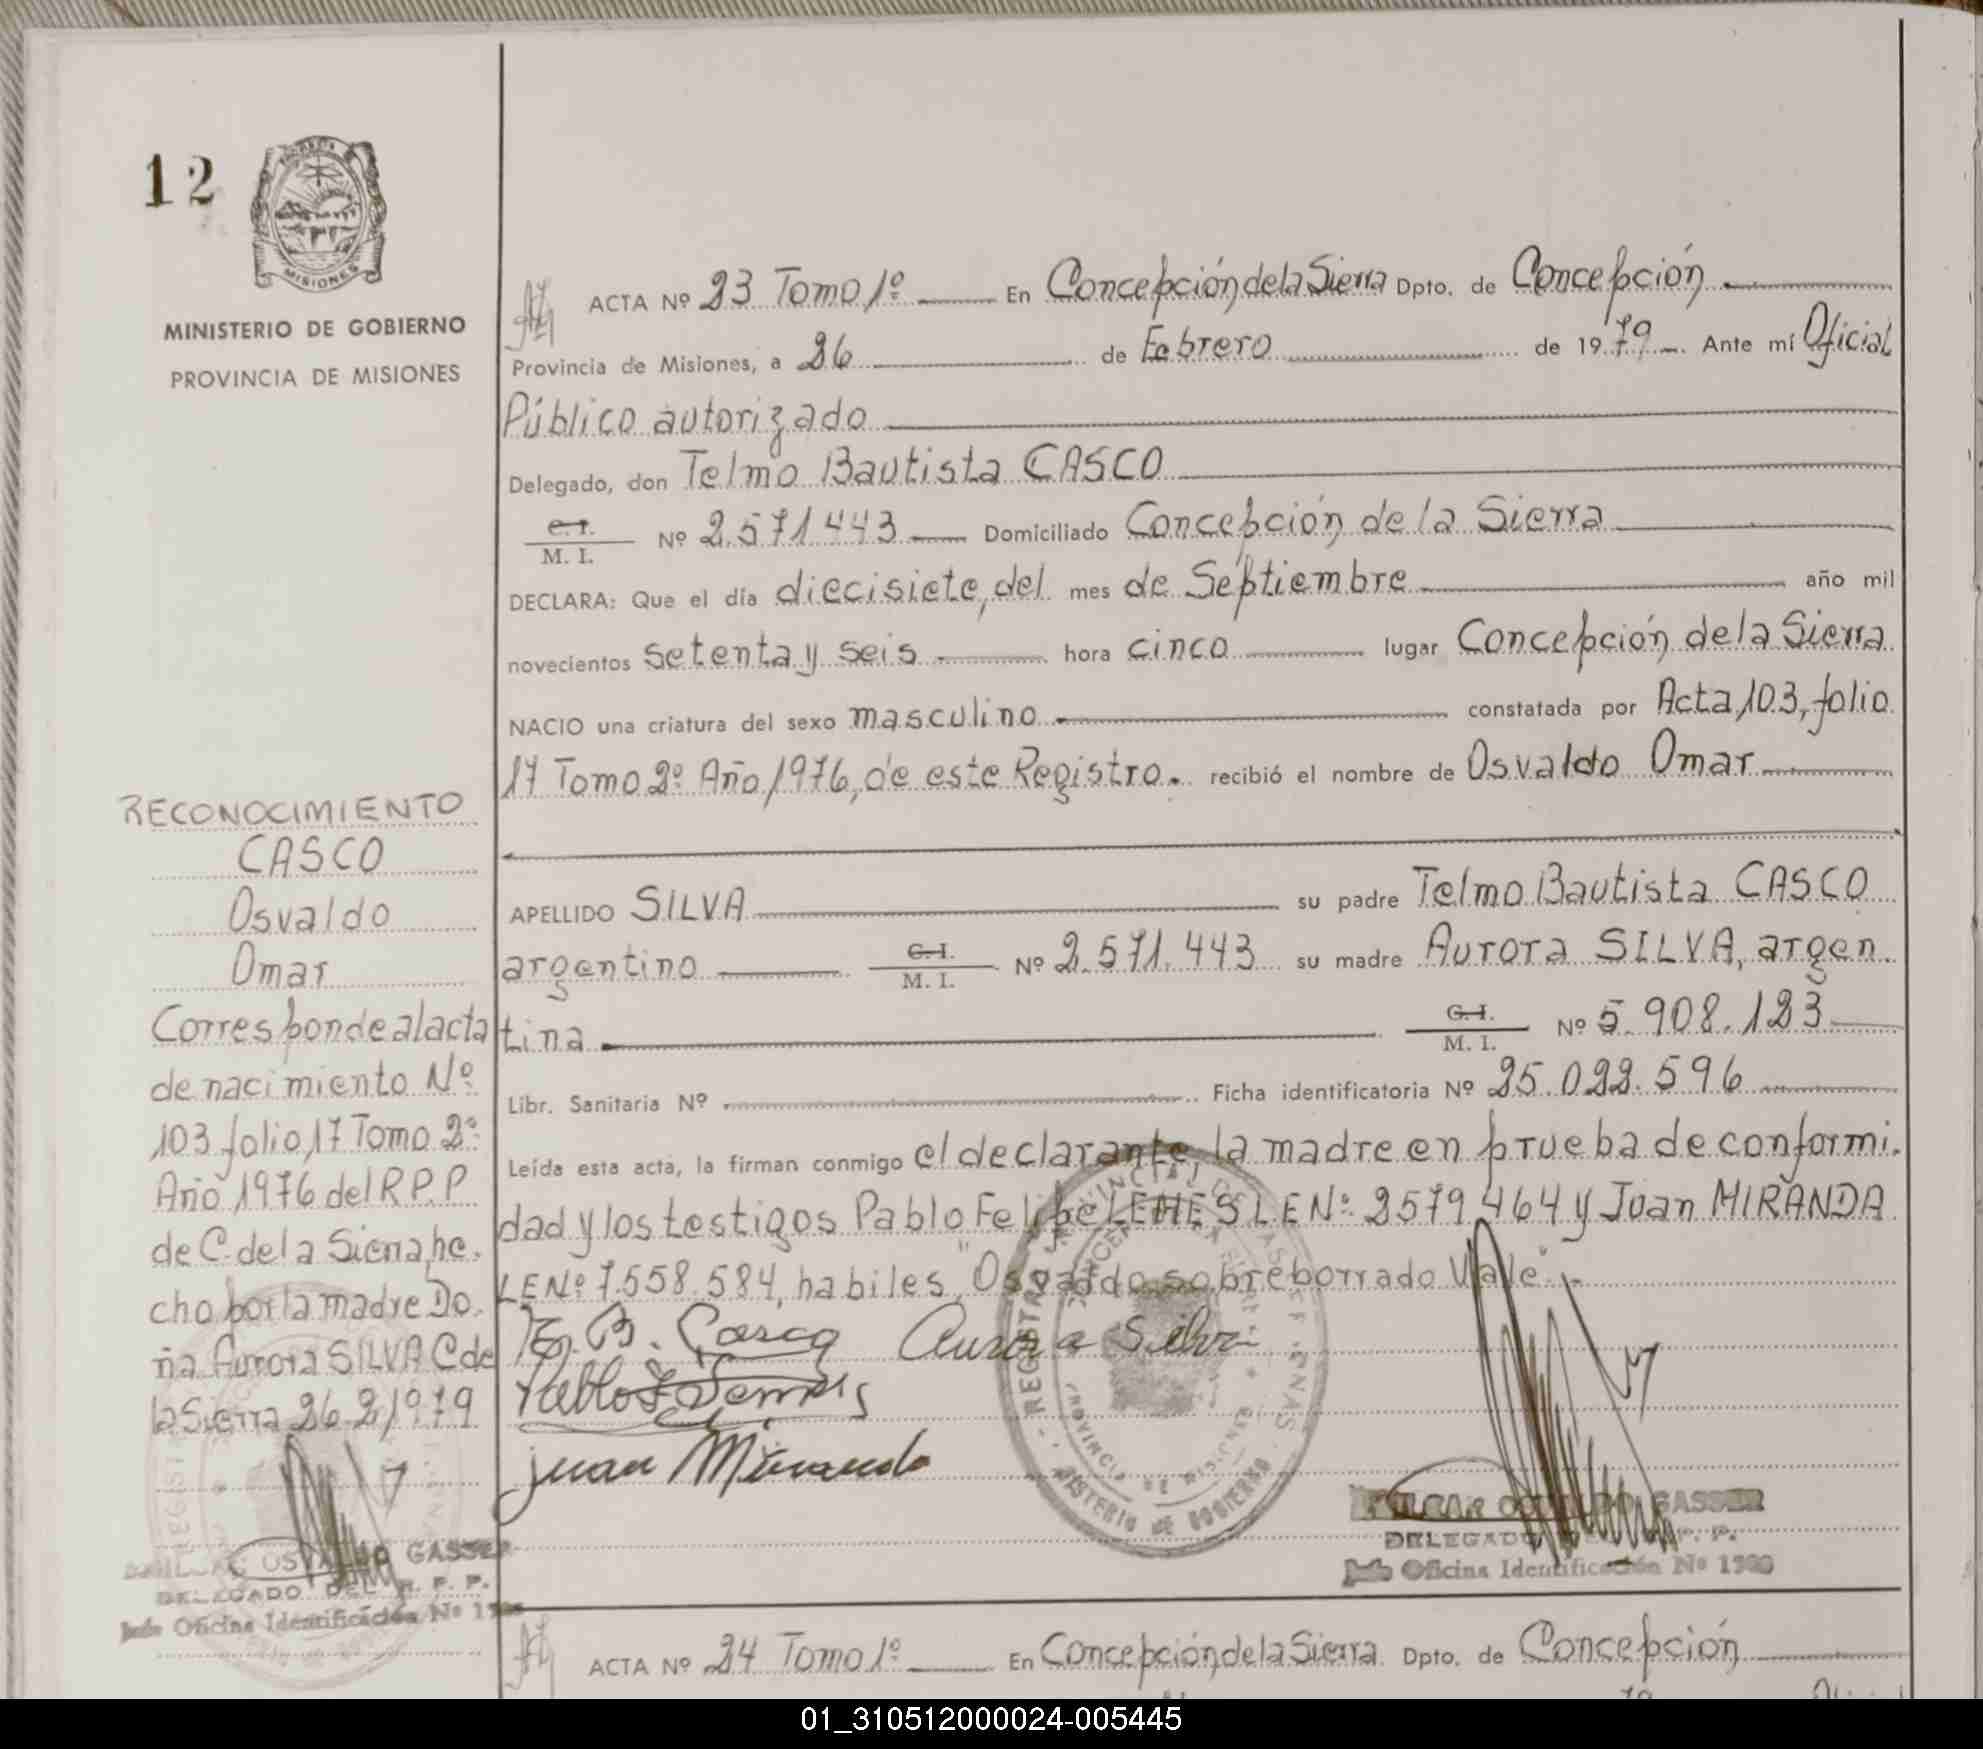 12
MISIONES
MINISTERIO DE GOBIERNO
PROVINCIA DE MISIONES
ACTA Nº 23 Tomo 1º En Concepción de la Sierra Dpto. de Concepción
Provincia de Misiones, a 26 de Febrero de 1979 Ante mí Oficial
Público autorizado
Delegado, don Telmo Bautista CASCO
C. I.
M. I. Nº 2.571.443 Domiciliado Concepción de la Sierra
DECLARA: Que el día diecisiete, del mes de Septiembre año mil
novecientos setenta y seis hora cinco lugar Concepción de la Sierra
NACIO una criatura del sexo masculino constatada por Acta 103, folio
17 Tomo 2º Año 1976, de este Registro. recibió el nombre de Osvaldo Omar
APELLIDO SILVA su padre Telmo Bautista CASCO
argentino C. I. M. I. Nº 2.571.443 su madre Aurora SILVA, argen.
tina C. I. M. I. Nº 5.908.123
Libr. Sanitaria Nº Ficha identificatoria Nº 25.022.596
Leída esta acta, la firman conmigo el declarante, la madre en prueba de conformi.
dad y los testigos Pablo Felipe LEMES LE Nº: 2579464 y Juan MIRANDA
LE Nº: 7.558.584, habiles, "Osvaldo sobreborrado Vale".
T. B. Casco Aurora Silva
Pablo F Lemes
Juan Miranda
OSVALDO GASSER
DELEGADO DEL R. P. P.
Jefe Oficina Identificación Nº
RECONOCIMIENTO
CASCO
Osvaldo
Omar
Corresponde al acta
de nacimiento Nº
103 folio 17 Tomo 2º
Año 1976 del R.P.P
de C. de la Sierra, he.
cho por la madre Do.
ña Aurora SILVA C de
la Sierra 26.2.1979
OSVALDO GASSER
DELEGADO DEL R. P. P.
Jefe Oficina Identificación Nº
REGISTRO PROVINCIAL DE LAS PERSONAS
MINISTERIO DE GOBIERNO
PROVINCIA DE MISIONES
ACTA Nº 24 Tomo 1º En Concepción de la Sierra Dpto. de Concepción
01_310512000024-005445